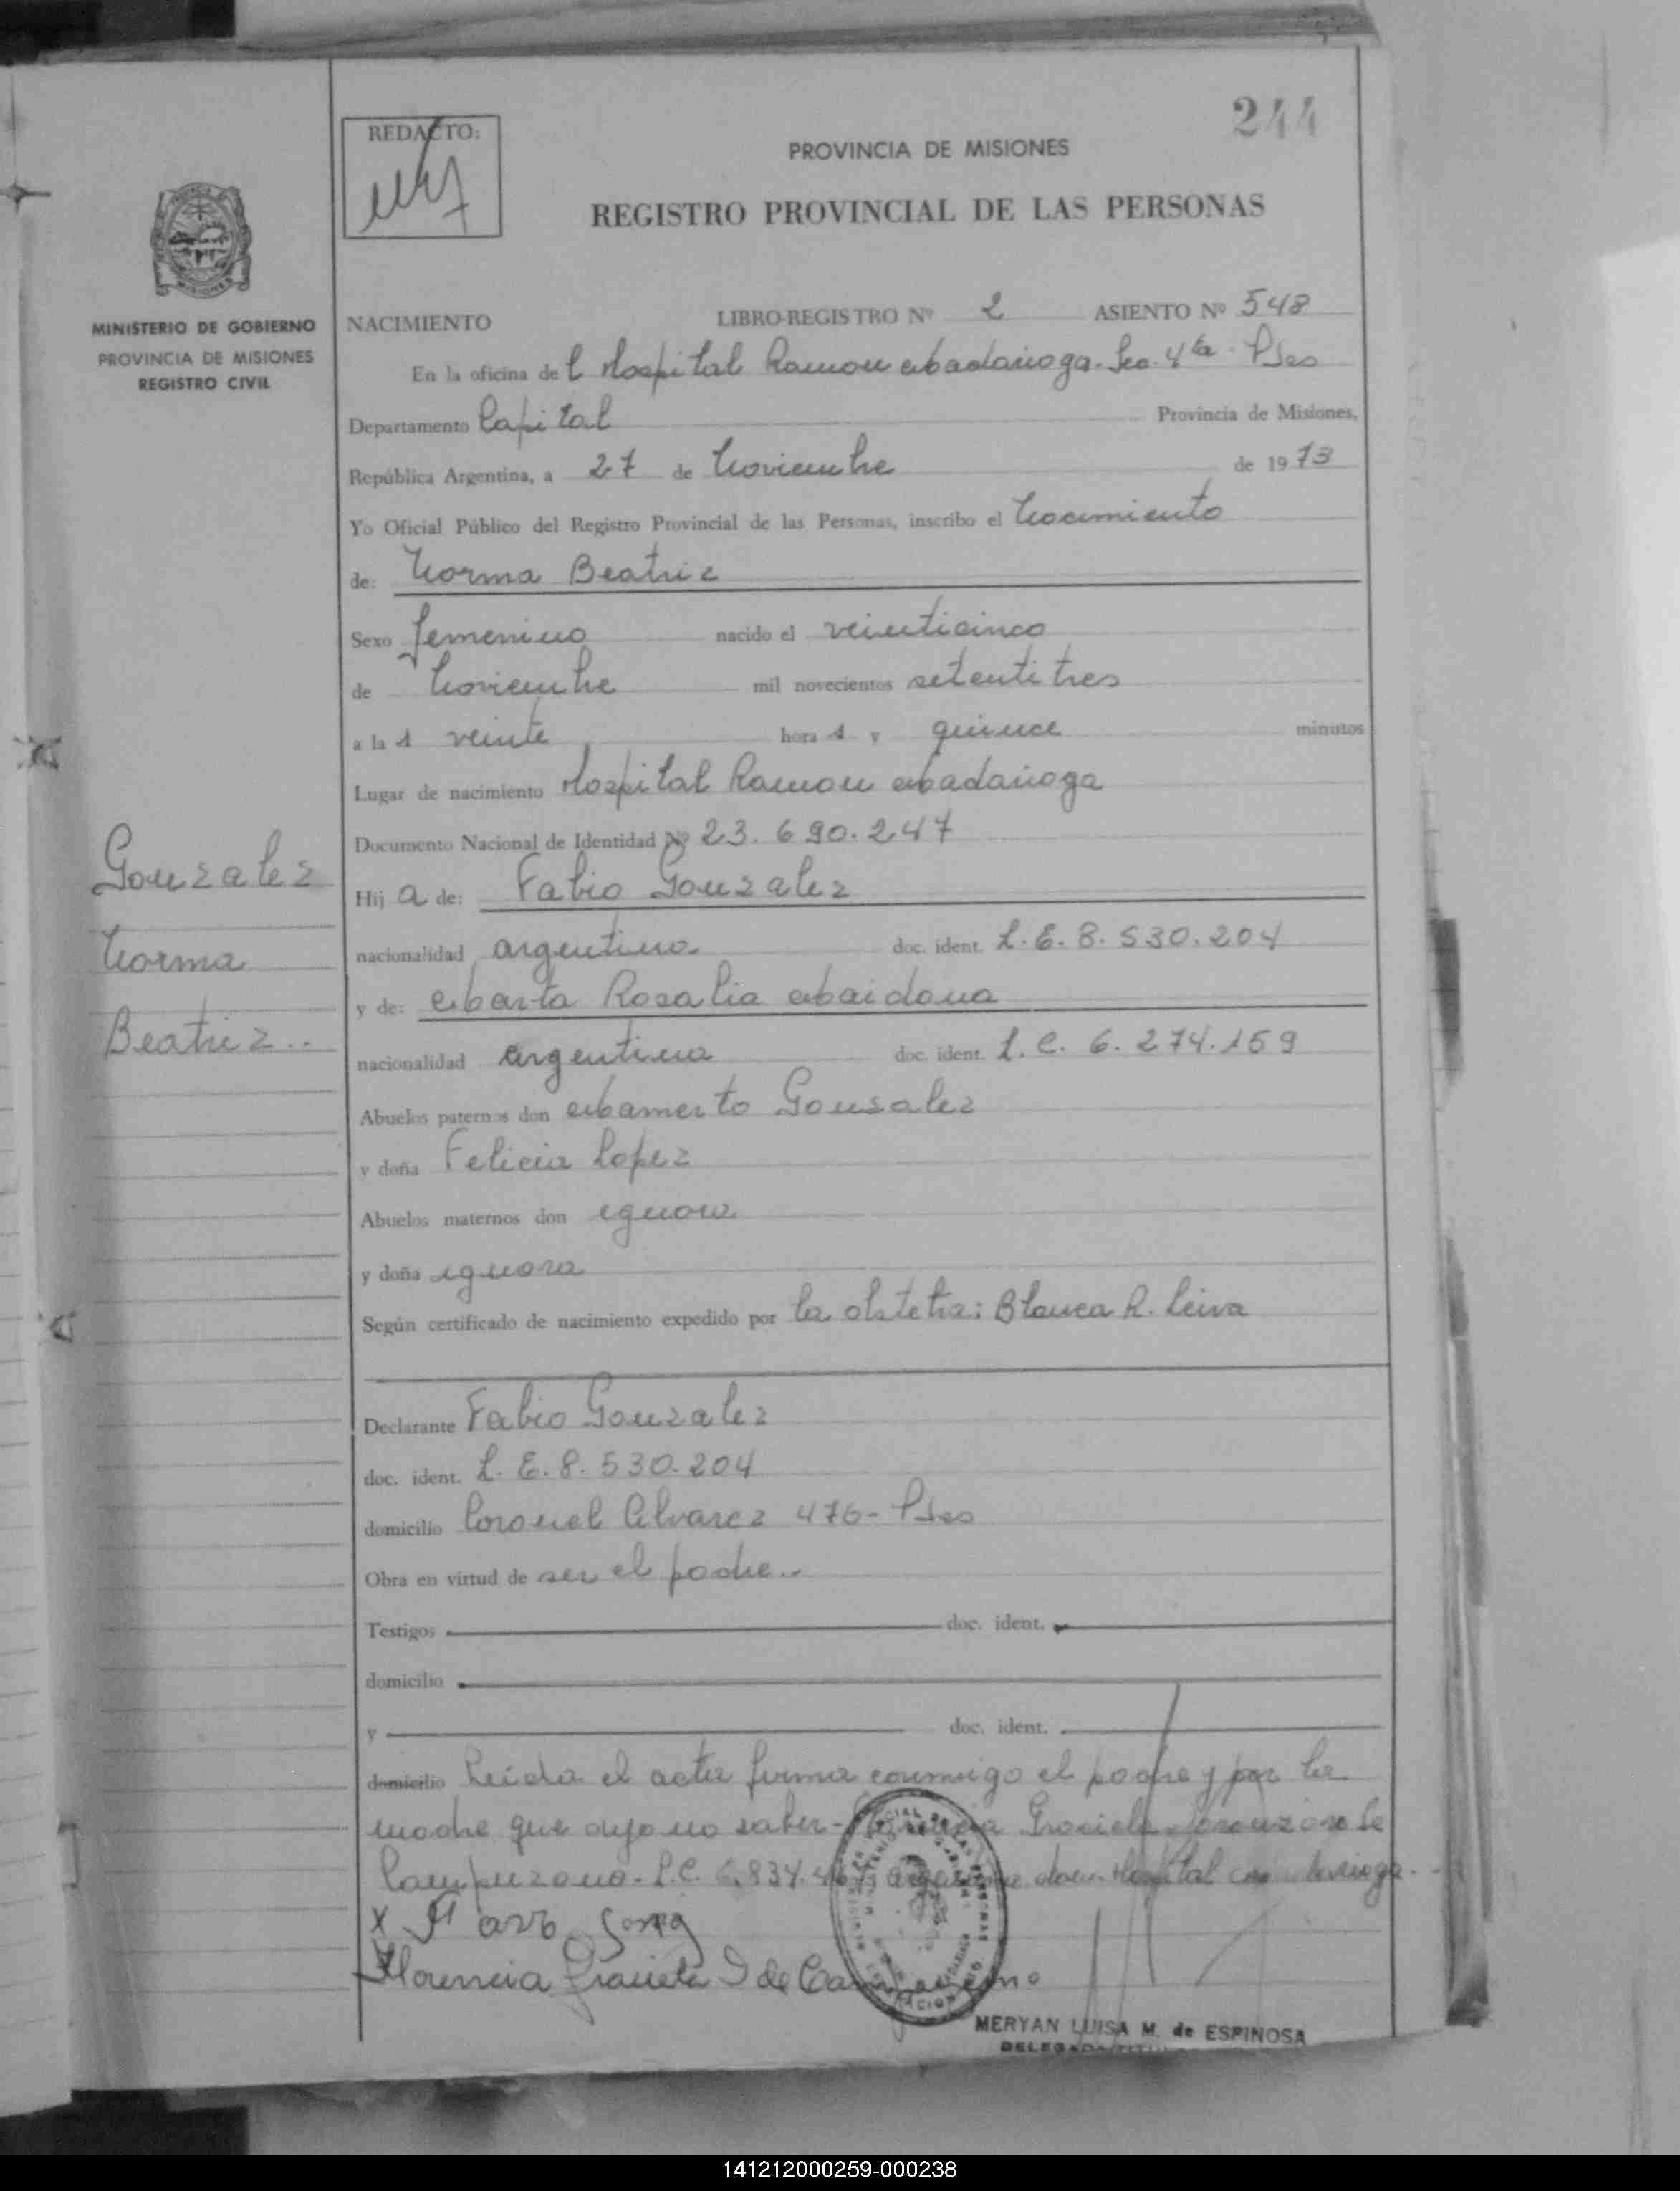 244
REDACTO:
PROVINCIA DE MISIONES
REGISTRO PROVINCIAL DE LAS PERSONAS
MISIONES
MINISTERIO DE GOBIERNO
PROVINCIA DE MISIONES
REGISTRO CIVIL
NACIMIENTO LIBRO-REGISTRO Nº 2 ASIENTO Nº 548
En la oficina del Hospital Ramon Madariaga. Sec. 4ta - Pdas
Departamento Capital Provincia de Misiones,
República Argentina, a 27 de Noviembre de 1973
Yo Oficial Público del Registro Provincial de las Personas, inscribo el Nacimiento
de: Norma Beatriz
Sexo femenino nacido el veinticinco
de Noviembre mil novecientos setentitres
a las veinte horas y quince minutos
Lugar de nacimiento Hospital Ramon Madariaga
Documento Nacional de Identidad Nº 23.690.247
Hija de: Fabio Gonzalez
nacionalidad argentina doc. ident. L.E. 8.530.204
y de: Marta Rosalia Maidana
nacionalidad argentina doc. ident. L.C. 6.274.159
Abuelos paternos don Mamerto Gonzalez
y doña Felicia Lopez
Abuelos maternos don ignora
y doña ignora
Según certificado de nacimiento expedido por la obstetra: Blanca R. Leiva
Gonzalez
Norma
Beatriz..
Declarante Fabio Gonzalez
doc. ident. L.E. 8.530.204
domicilio Coronel Alvarez 476 - Pdas
Obra en virtud de ser el padre..
Testigos doc. ident.
domicilio
y doc. ident.
domicilio Leida el acta firma conmigo el padre y por la
madre que dijo no saber - Florencia Graciela de
Campuzano - L.C. 6.834. dom. Hospital Madariaga.
Florencia Graciela I de Campuzano
MERYAN LUISA M. de ESPINOSA
DELEGADA TITULAR
141212000259-000238